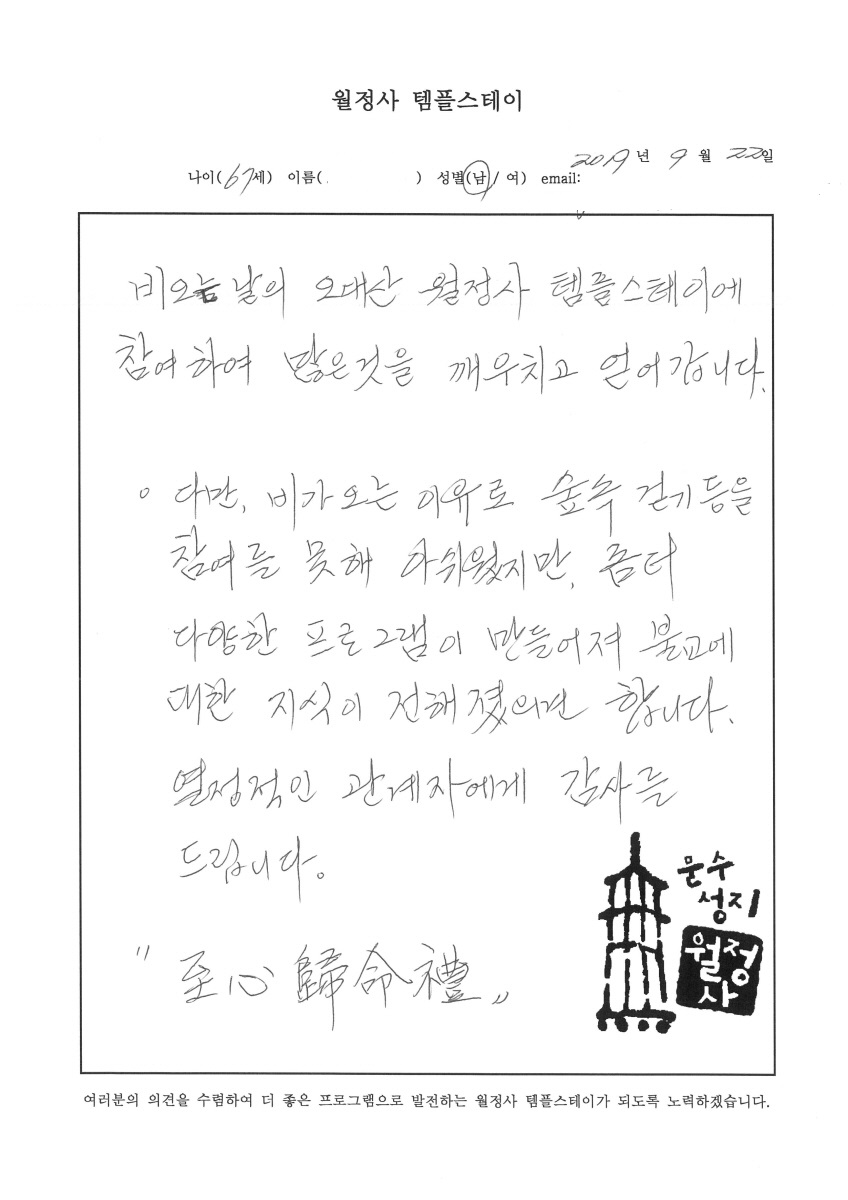 월정사 템플스테이
2019년 9월 22일
나이(67세) 이름( ) 성별(남/ 여) email:
비오는 날의 오대산 월정사 템플스테이에
참여하여 많은것을 깨우치고 얻어갑니다.
○ 다만, 비가오는 이유로 숲속 걷기등을
참여를 못해 아쉬웠지만, 좀더
다양한 프로그램이 만들어져 불교에
대한 지식이 전해졌으면 합니다.
열정적인 관계자에게 감사를
드립니다.
"至心歸命禮"
문수
성지
월정
사
여러분의 의견을 수렴하여 더 좋은 프로그램으로 발전하는 월정사 템플스테이가 되도록 노력하겠습니다.